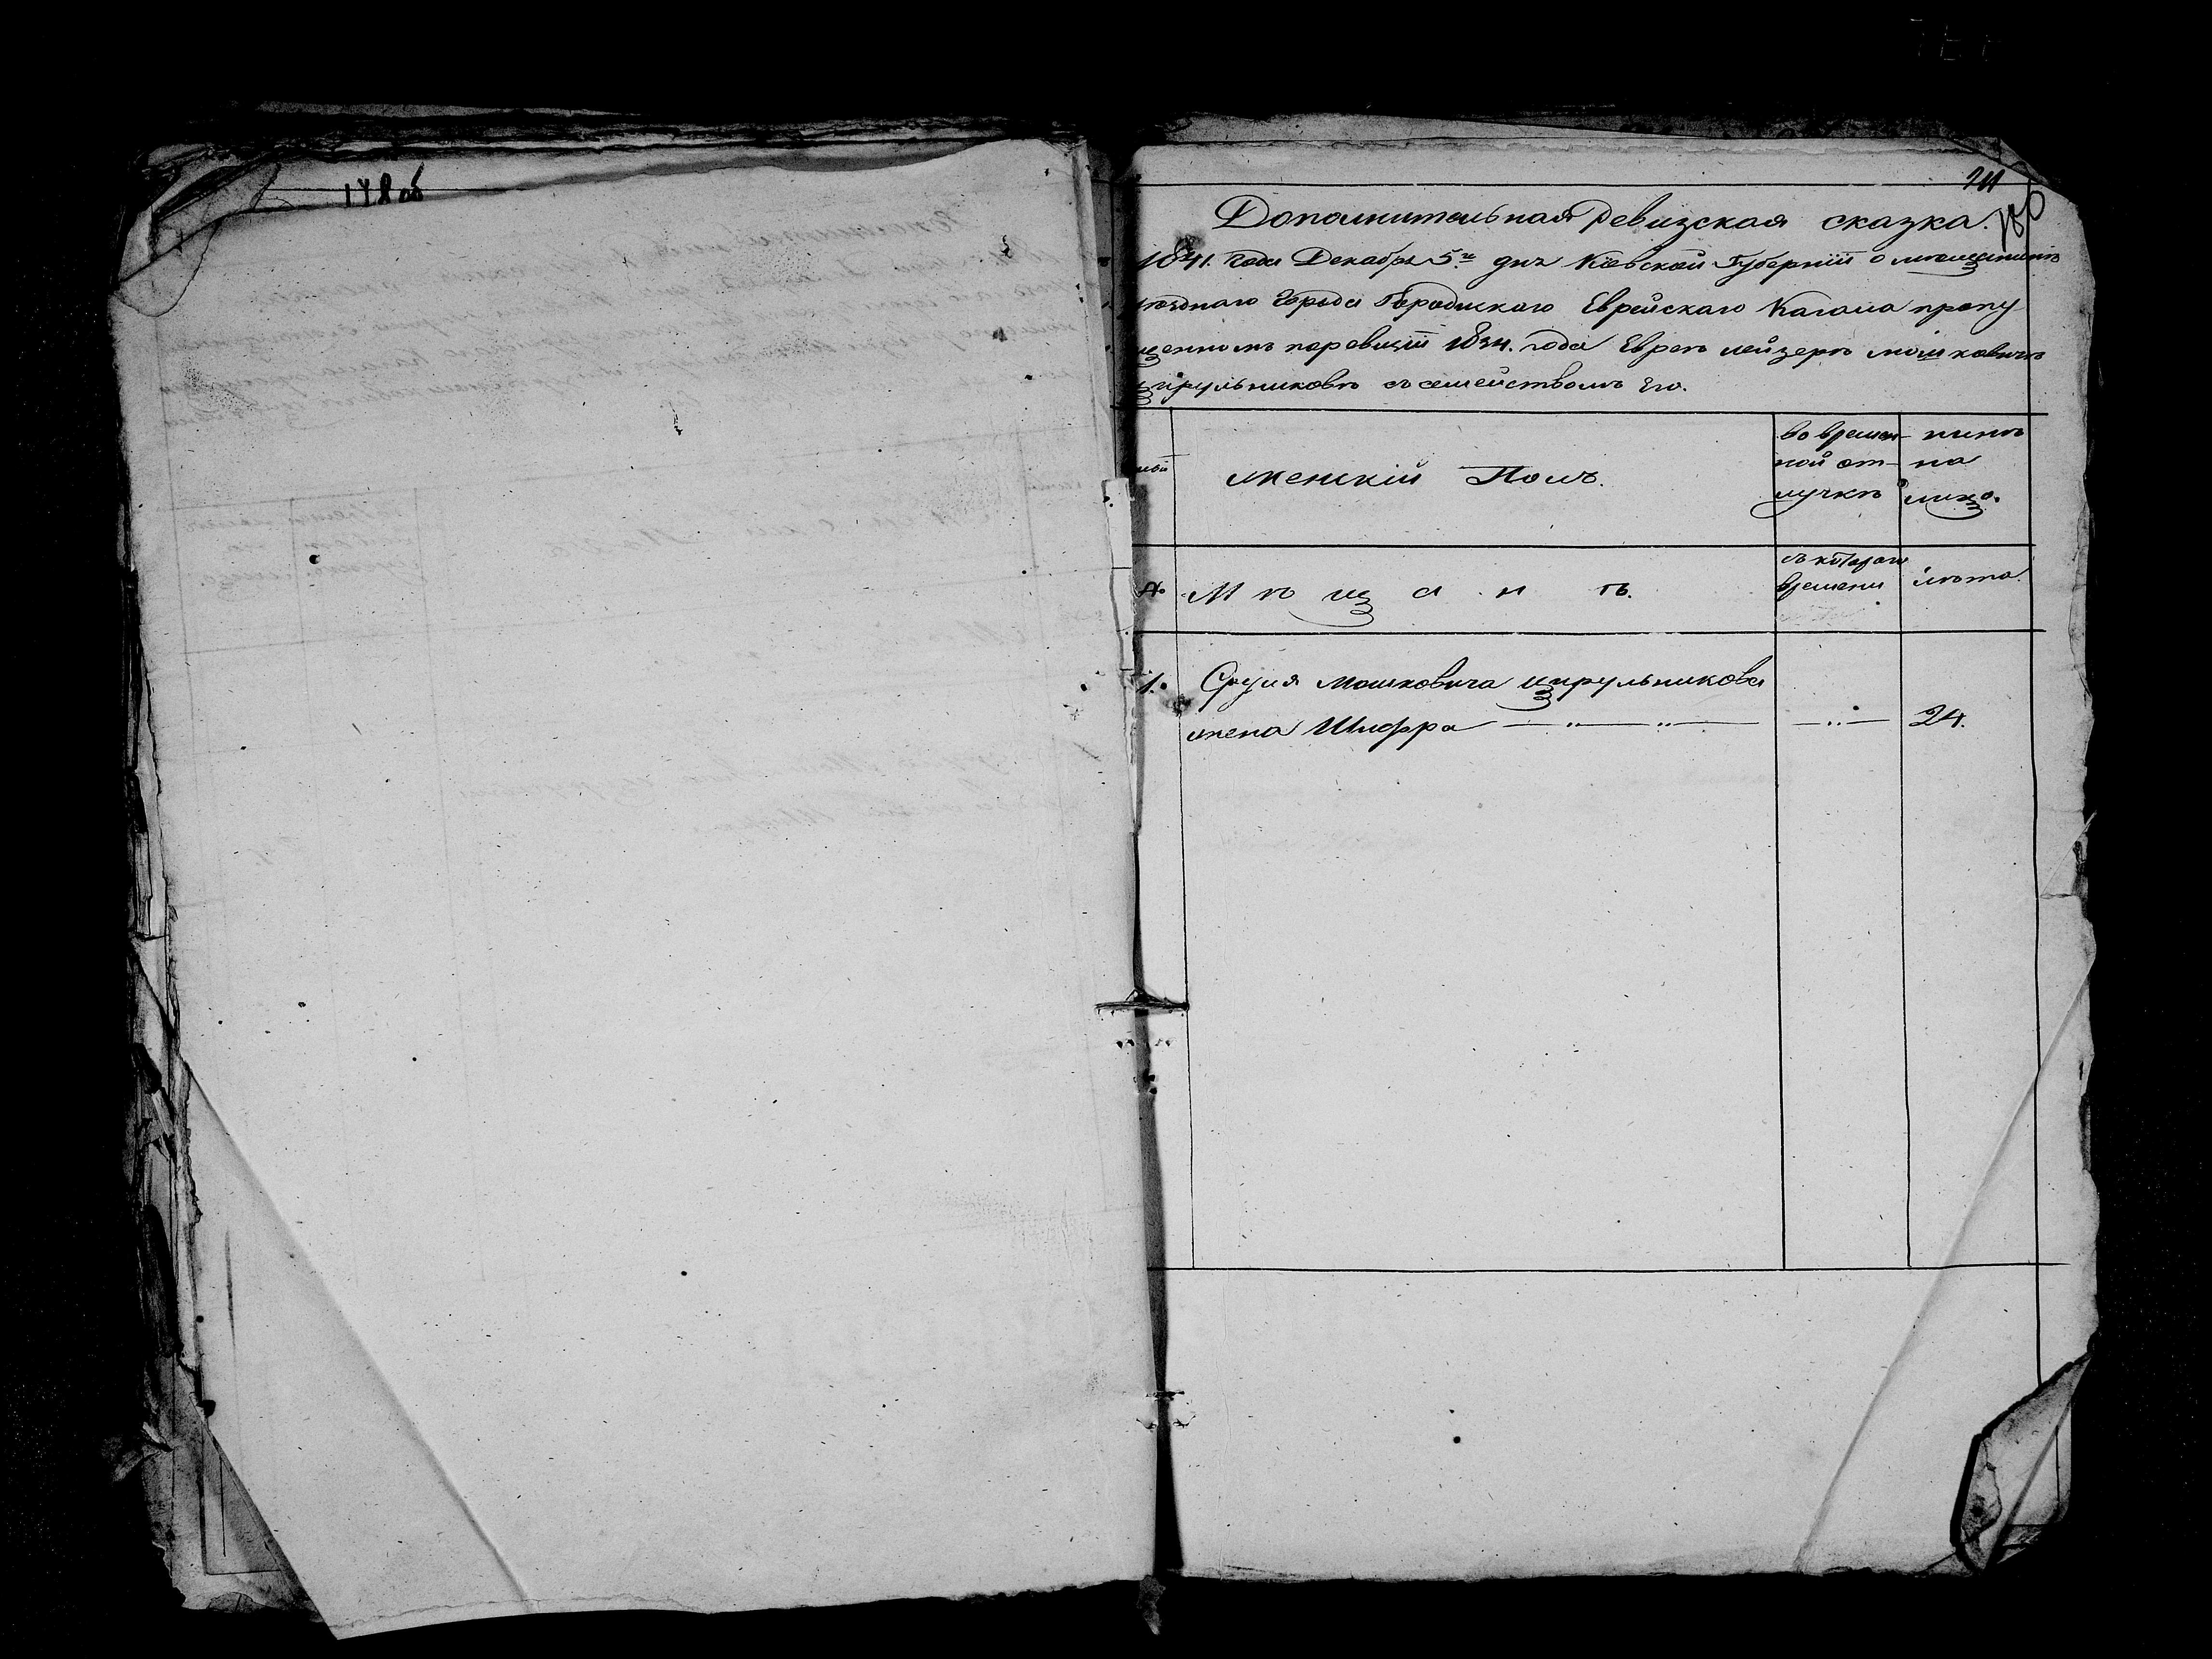 178 об
211
Дополнительная Ревизская сказка.
1841. Года Декабря 5.го дня Кіевской Губерніи о мещанинѣ
города Еврейскаго Кагала пропу-
щенномъ поревизіи 1834. года Евреѣ Лейзерѣ Мошковичѣ
Цирульниковѣ съ семействомъ Его.
женскій Полъ.
во времен-
ной от-
лучкѣ
нынѣ
на
лицо.
М ѣ щ а н ѣ.
съ котораго
времени
лѣта.
1. Сруля Мошковича Цирульникова
жена Шифра — „ — „ — — „ — 24.